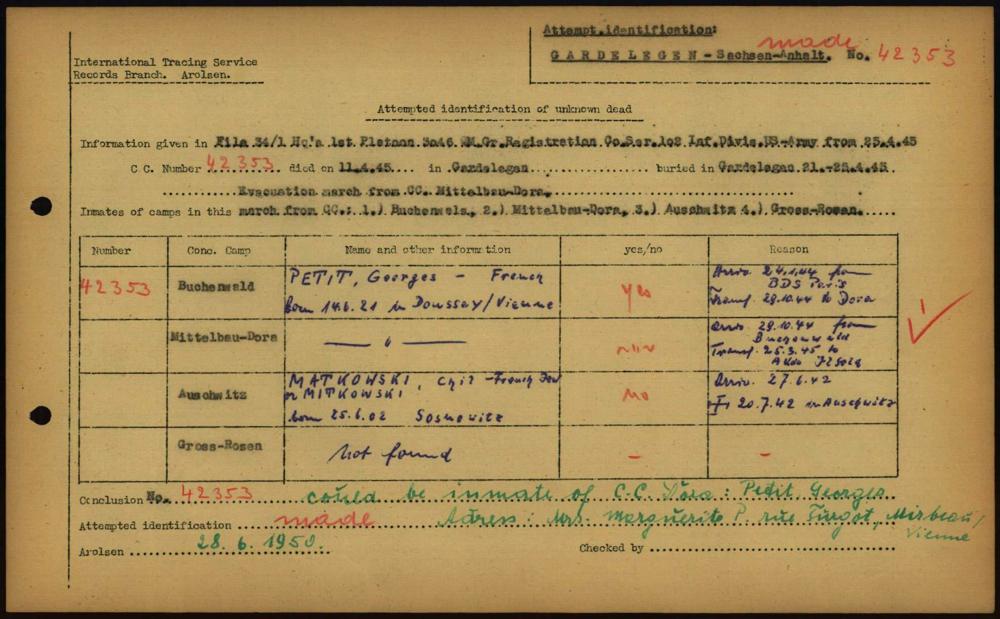 Attempt.identification:
made
GARDELEGEN - Sachsen-Anhalt. No. 42353
International Tracing Service
Records Branch. Arolsen.
Attempted identification of unknown dead
Information given in File 34/1 Hq'a 1st Platoon 3046 QM.Gr.Registration Co.Ser.102 Inf.Divis.US-Army from 25.4.45
C C. Number 42353 died on 11.4.45. in Gardelegen buried in Gardelegen 21.-25.4.45.
Evacuation march from CC. Mittelbau-Dora.
Inmates of camps in this march from CC.: 1.) Buchenwals, 2.) Mittelbau-Dora, 3.) Auschwitz 4.) Gross-Rosen.
Number Conc. Camp Name and other information yes/no Reason
42353 Buchenwald PETIT, Georges - French born 14.6.21 in Doussay/Vienne yes Arriv. 24.1.44 from BDS Paris Transf. 29.10.44 to Dora
Mittelbau-Dora — " — Arriv. 29.10.44 from Buchenwald Transf. 25.3.45 to
Auschwitz MATKOWSKI, Chil - French Jew or MITKOWSKI born 25.6.02 Soskowitz no Arriv. 27.6.42 20.7.42 in Auschwitz
Gross-Rosen not found - -
Conclusion No. 42353 could be inmate of C.C. Dora: Petit Georges
Attempted identification made Adress: Mrs. Marguerite P. rue Turgot, Mirbeau/
Vienne
Arolsen 28.6.1950. Checked by